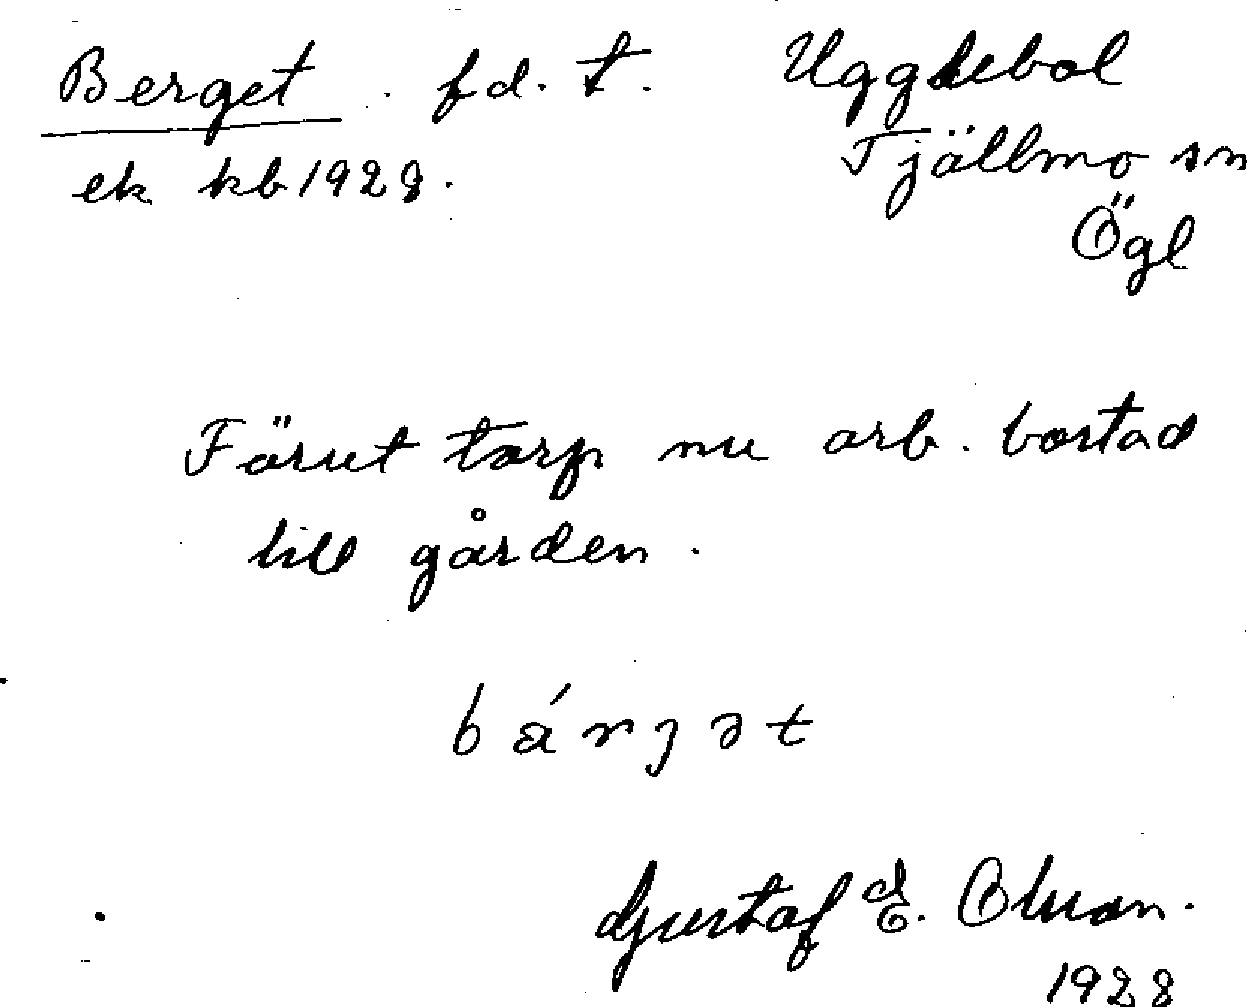 Berget . fd. t. Uggdebol
ek kb 1928. Tjällmo sn
Ögl
Förut torp nu arb. bostad
till gården.
bárjət
Gustaf E. Olsson.
1928